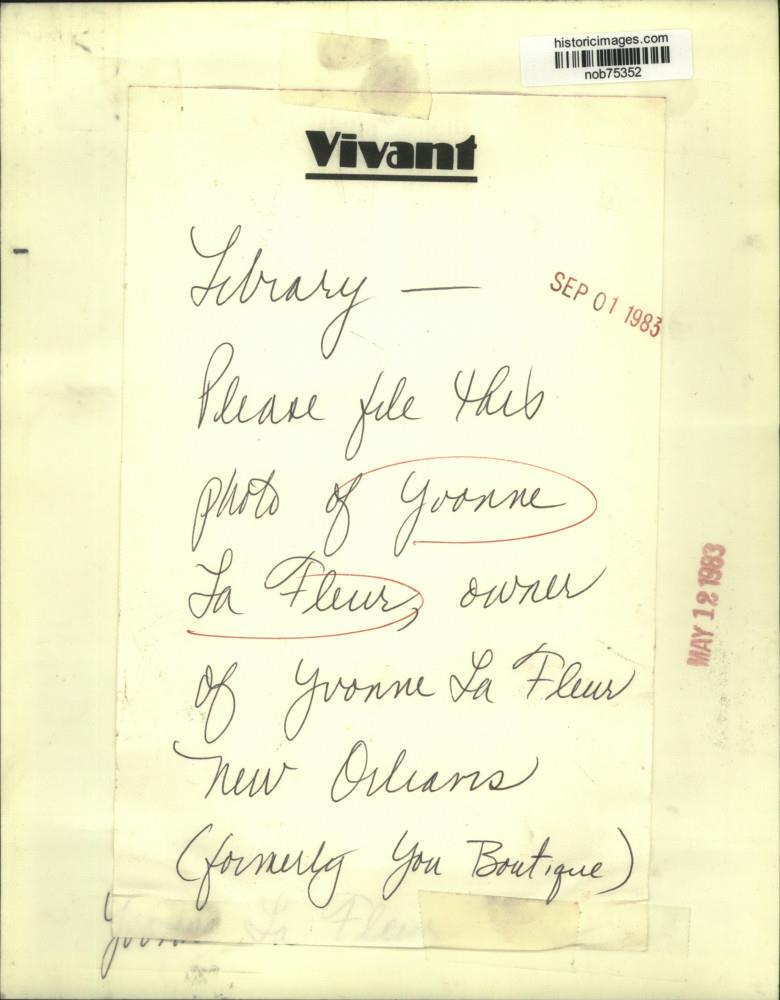 historicimages.com
nob75352
Vivant
SEP 01 1983
Library —
Please file this
photo of Yvonne
La Fleur, owner
of Yvonne La Fleur
New Orleans
(formerly You Boutique)
MAY 12 1983
Yvonne La Fleur